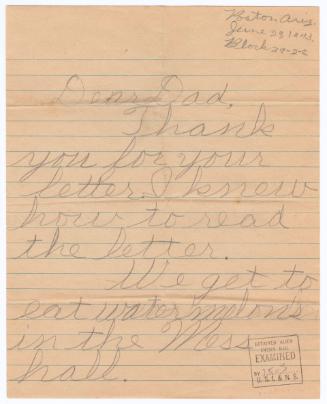 Poston, Ariz.
June 23, 1943.
Block 29-2-C
Dear Dad,
Thank
you for your
letter. I knew
how to read
the letter.
We get to
eat watermelons
in the Mess
hall.
DETAINED ALIEN
ENEMY MAIL
EXAMINED
BY
U.S.I.&N.S.